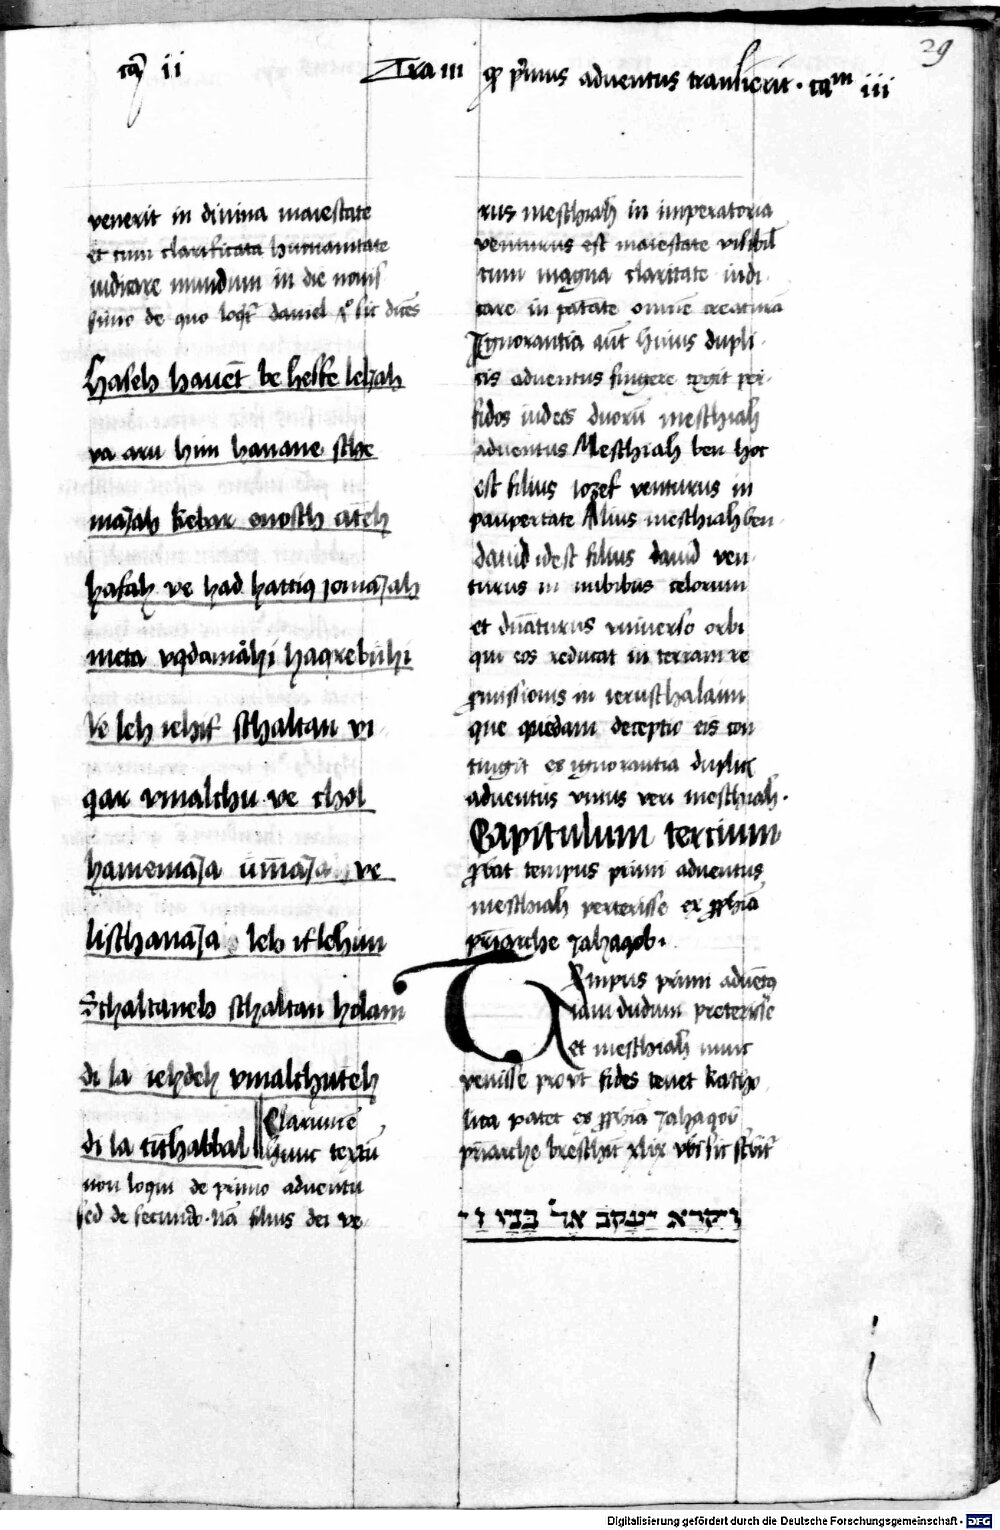 ca ii
Tra iii qp primus adventus transierit · cam iii
29
venerit in divina maiestate
et cum clarificata humanitate
iudicare mundum in die novis
simo de quo loqr daniel sic dices
Haseh havet be helke lehah
va aru him hanane sthe
majah kebar enosth ateh
hasah ve had hattiq jomajah
meta vqdamahi haqrebuhi
Ve leh iehif sthaltan vi
qar vmalchu ve chol
hamemaja umaja ve
listhanaja leh iflehun
Sthaltaneh sthaltan holam
di la iehdeh vmalchuteh
di la tithabbal Clarum e
hunc textu
non loqui de primo adventu
sed de secundo · na filius dei ve
rus mesthiah in imperatoria
venturus est maiestate visibil
cum magna claritate iudi
care in ptate omne creatura
Ignorantia aut huius dupli
cis adventus fingere cogit per
fidos iudeos duoru mesthiah
adventus Mesthiah ben hoc
est filius iozef venturus in
paupertate Alius mesthiah ben
david idest filius david ven
turus in nubibus celorum
et dnaturus vniverso orbi
qui eos reducat in terram re
pmissionis in ierusthalaim
que quedam deceptio eis con
tingit ex ignorantia duplicis
adventus vnius veri mesthiah ·
Capitulum tercium
pbat tempus primi adventus
mesthiah preterisse ex pphia
priarche Jahaqob ·
Tempus primi adventus
iam dudum preterisse
et mesthiah nunc
venisse provt fides tenet katho
lica patet ex pphia Jahaqob
priarche bresthit xlix vbi sic scbit
ויקרא יעקב אל בניו וי
Digitalisierung gefördert durch die Deutsche Forschungsgemeinschaft - DFG